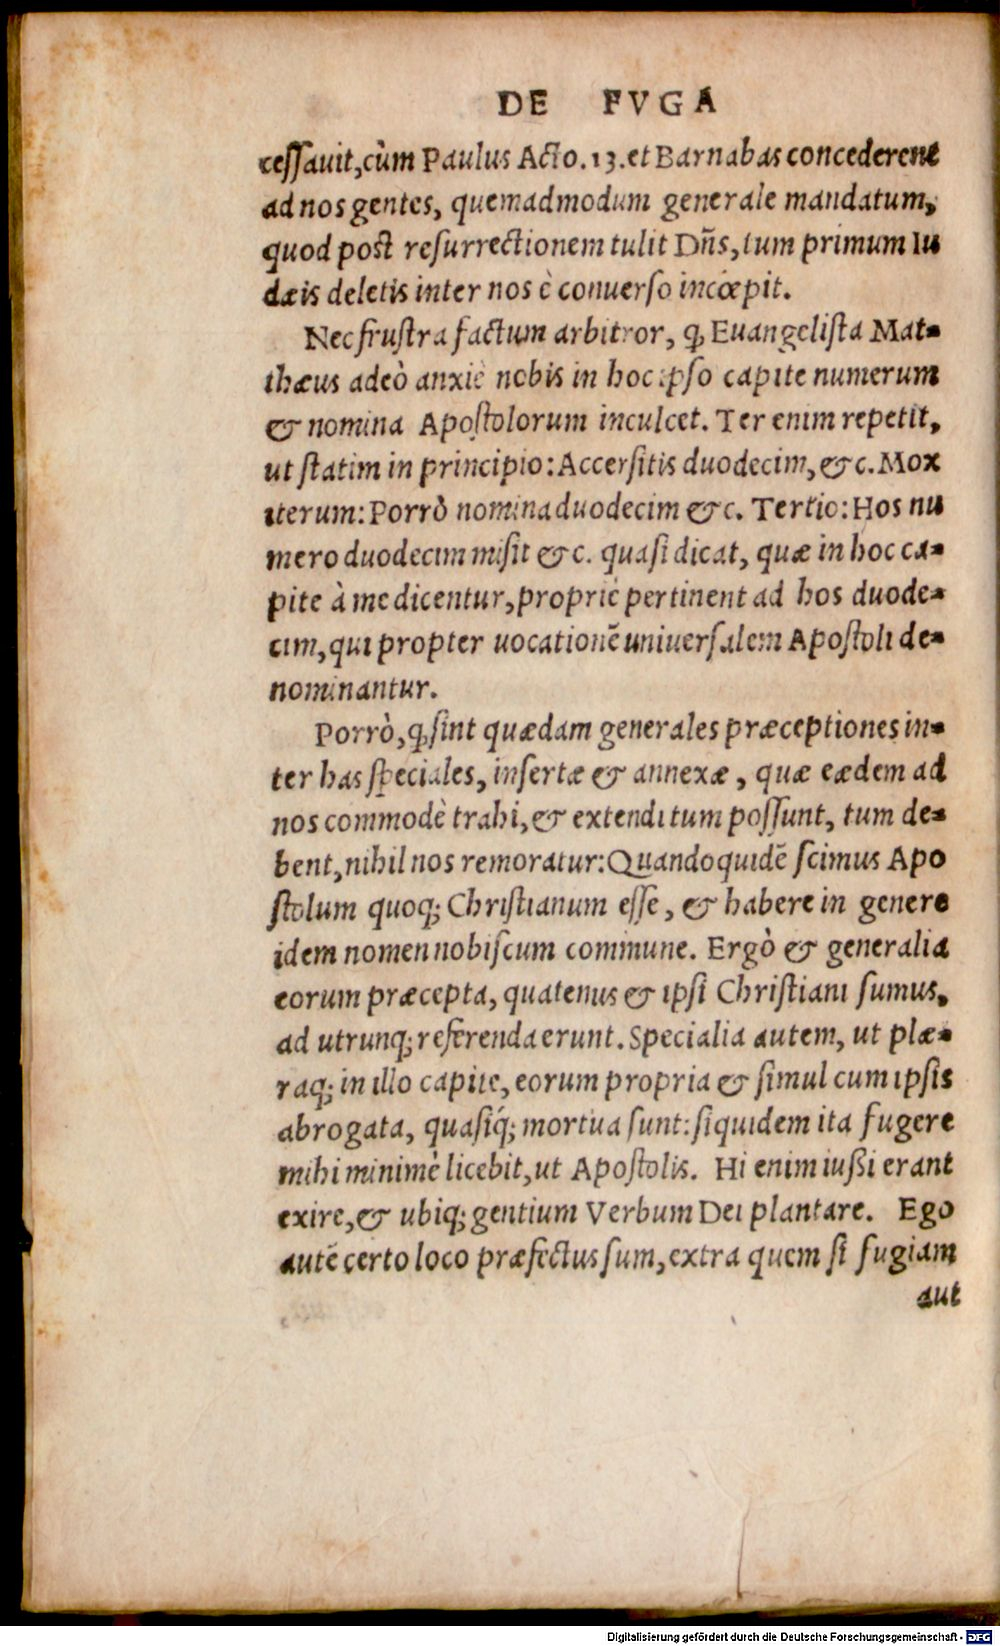 DE FVGA
cessauit, cùm Paulus Acto. 13. et Barnabas concederent
ad nos gentes, quemadmodum generale mandatum,
quod post resurrectionem tulit Dn̄s, tum primum Iu
dæis deletis inter nos è conuerso incœpit.
Nec frustra factum arbitror, ꝙ Euangelista Mat-
thæus adeò anxiè nobis in hoc ipso capite numerum
& nomina Apostolorum inculcet. Ter enim repetit,
ut statim in principio: Accersitis duodecim, &c. Mox
iterum: Porrò nomina duodecim &c. Tertio: Hos nu
mero duodecim misit &c. quasi dicat, quæ in hoc ca-
pite à me dicentur, propriè pertinent ad hos duode-
cim, qui propter uocationē uniuersalem Apostoli de-
nominantur.
Porrò, ꝙ sint quædam generales præceptiones in-
ter has speciales, insertæ & annexæ, quæ eædem ad
nos commodè trahi, & extendi tum possunt, tum de-
bent, nihil nos remoratur: Quandoquidē scimus Apo
stolum quoq; Christianum esse, & habere in genere
idem nomen nobiscum commune. Ergò & generalia
eorum præcepta, quatenus & ipsi Christiani sumus,
ad utrunq; referenda erunt. Specialia autem, ut plæ-
raq; in illo capite, eorum propria & simul cum ipsis
abrogata, quasiq́; mortua sunt: siquidem ita fugere
mihi minimè licebit, ut Apostolis. Hi enim iußi erant
exire, & ubiq; gentium Verbum Dei plantare. Ego
autē certo loco præfectus sum, extra quem si fugiam
aut
Digitalisierung gefördert durch die Deutsche Forschungsgemeinschaft - DFG